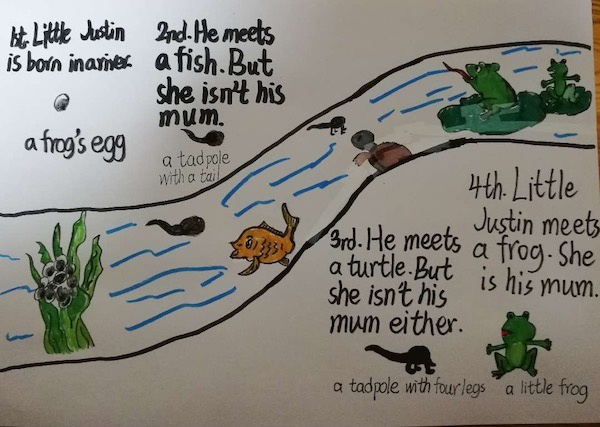 1st. Little Justin
is born in a river.
a frog's egg
2nd. He meets
a fish. But
she isn't his
mum.
a tadpole
with a tail
3rd. He meets
a turtle. But
she isn't his
mum either.
a tadpole with four legs
4th. Little
Justin meets
a frog. She
is his mum.
a little frog